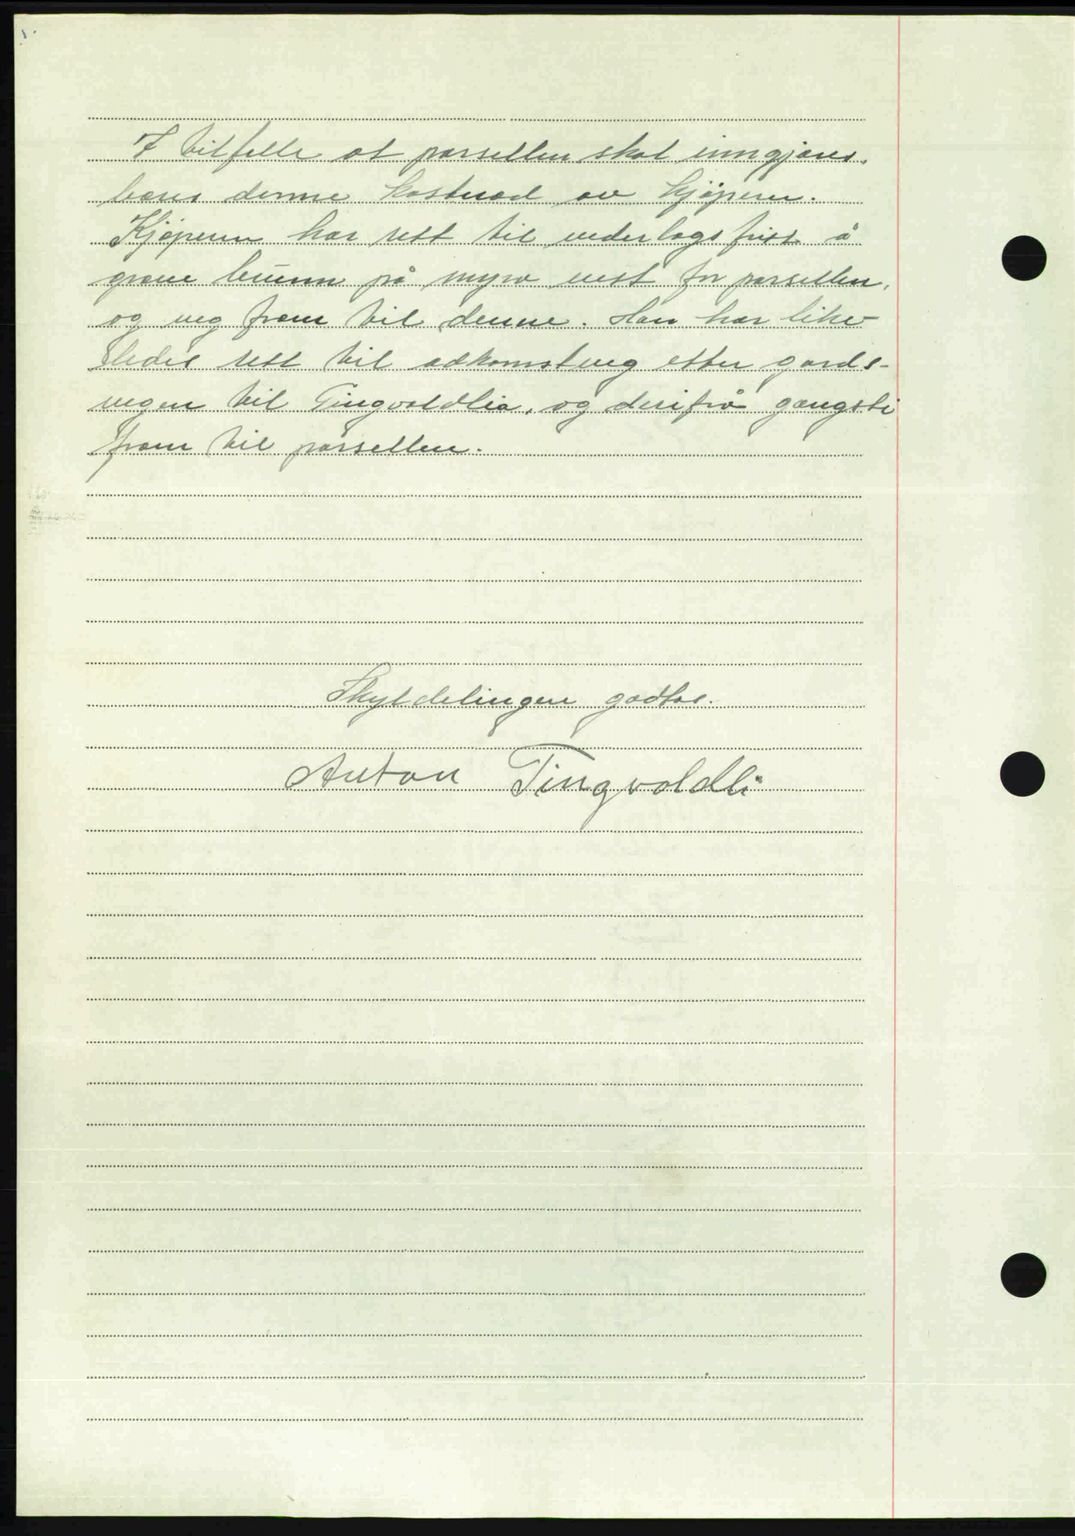 I tilfelle at parsellen skal inngjæres,
bæres denne kostnad av kjøperen.
Kjøperen har rett til vederlagsfritt å
grave brunn på myra vest for parsellen,
og veg fram til denne. Han har like-
ledes rett til adkomstveg etter gards-
vegen til Tingvoldlia, og derifrå gangsti
fram til parsellen.
Skyldelingen godtas.
Anton Tingvoldli